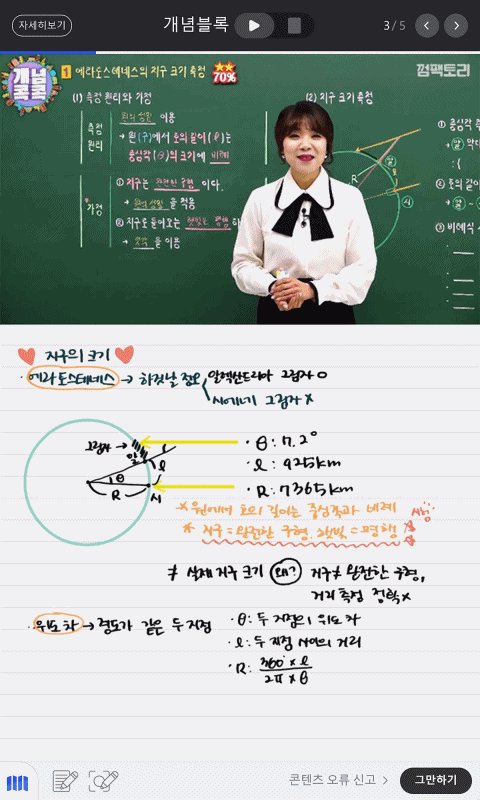 자세히보기
개념블록
3 / 5
개념
콕콕
1 에라토스테네스의 지구 크기 측정
70%
껌팩토리
(1) 측정 원리와 가정
(2) 지구 크기 측정
측정
원리
원의 성질 이용
→ 원(구)에서 호의 길이(ℓ)는
중심각(θ)의 크기에 비례
가정
① 지구는 완전한 구형 이다.
→ 원의 성질 을 적용
② 지구로 들어오는 햇빛은 평행 하
→ 엇각 을 이용
R
알
시
① 중심각
② 호의 길이
③ 비례식
지구의 크기
· 에라토스테네스 → 하짓날 정오 알렉산드리아 그림자 O
시에네 그림자 X
그림자 →
알
ℓ
θ
R
시
· θ : 7.2°
· ℓ : 925km
· R : 7365km
* 원에서 호의 길이는 중심각과 비례
* 지구 = 완전한 구형, 햇빛 = 평행
≠ 실제 지구 크기 왜? 지구 ≠ 완전한 구형,
거리 측정 정확 X
· 위도차 → 경도가 같은 두 지점
· θ : 두 지점의 위도 차
· ℓ : 두 지점 사이의 거리
· R : 360° × ℓ
2π × θ
콘텐츠 오류 신고 >
그만하기